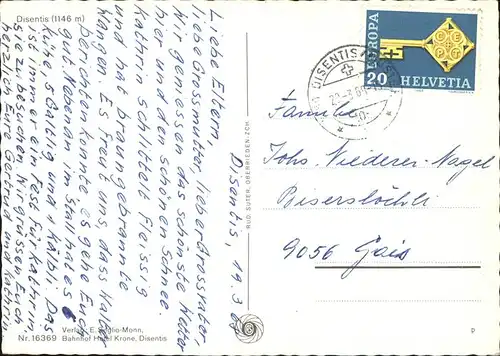 Disentis (1146 m)
Disentis, 19.3.69
Liebe Eltern, lieber Grossvater,
liebe Grossmutter,
Wir geniessen das schönste Wetter
hier und den schönen Schnee.
Kathrin schlittelt fleissig
und hat braungebrannte
Wangen. Es freut uns, dass Vater
berichten konnte es gehe Euch
gut. Nebenan im Stall hat es
Kühe, 5 Gitzi und 1 Kalbli. Das
ist immer ein Fest für Kathrin
sie zu besuchen. Wir grüssen Euch
herzlich Eure Gertrud und Kathrin
Verlag E.
Nr. 16369 Bahnhof Hotel Krone, Disentis
RUD. SUTER, OBERRIEDEN-ZCH.
EUROPA
CEPT
20 HELVETIA
DISENTIS
Familie
Johs. Niederer-Nagel
Biserslöchli
9056 Gais
p